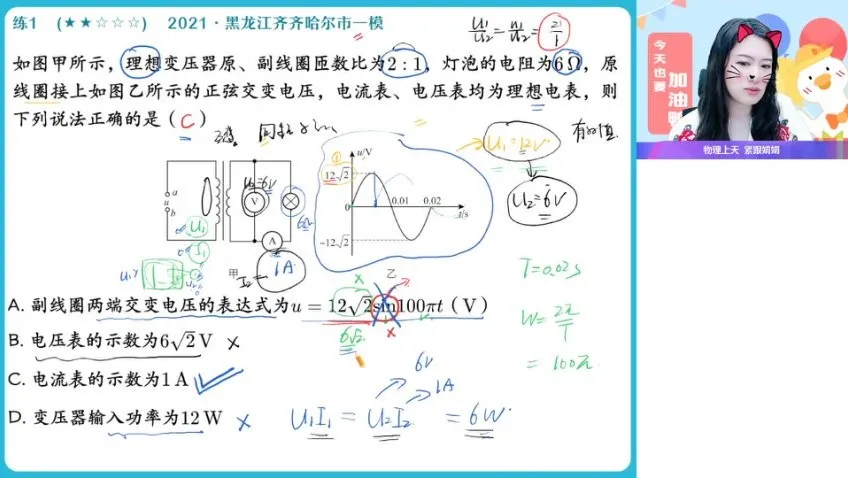 练1 (★★☆☆☆) 2021·黑龙江齐齐哈尔市一模
U₁/U₂ = n₁/n₂ = 2/1
如图甲所示，理想变压器原、副线圈匝数比为2:1，灯泡的电阻为6Ω，原
线圈接上如图乙所示的正弦交变电压，电流表、电压表均为理想电表，则
下列说法正确的是（C）
U₁=12V
有效值
U₂=6V
a
u
b
U₁
I₁
U₂=6V
V
A
6Ω
I₂=1A
甲
u/V
12√2
0
0.01
0.02
t/s
-12√2
乙
T=0.02s
A. 副线圈两端交变电压的表达式为u=12√2sin100πt（V）
6√2
W=2π/T
=100π
B. 电压表的示数为6√2V ×
C. 电流表的示数为1A
6V
1A
D. 变压器输入功率为12W ×
U₁I₁=U₂I₂=6W
今天也要
加油
物理上天 紧跟娟娟